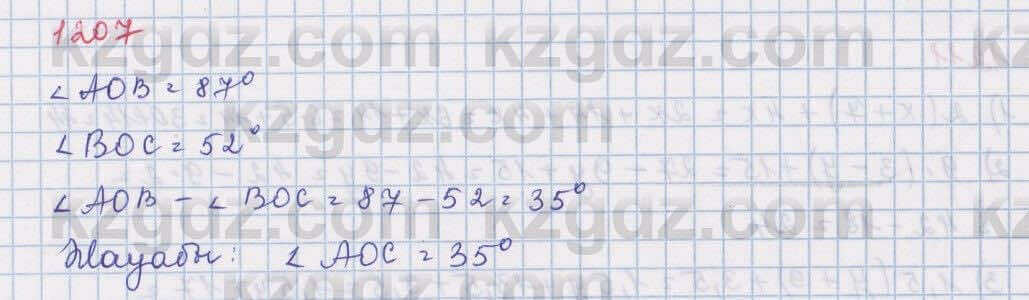 1207
∠AOB = 87°
∠BOC = 52°
∠AOB - ∠BOC = 87 - 52 = 35°
Жауабы: ∠AOC = 35°
kzgdz.com kzgdz.com
kzgdz.com
kzgdz.com kzgdz.com